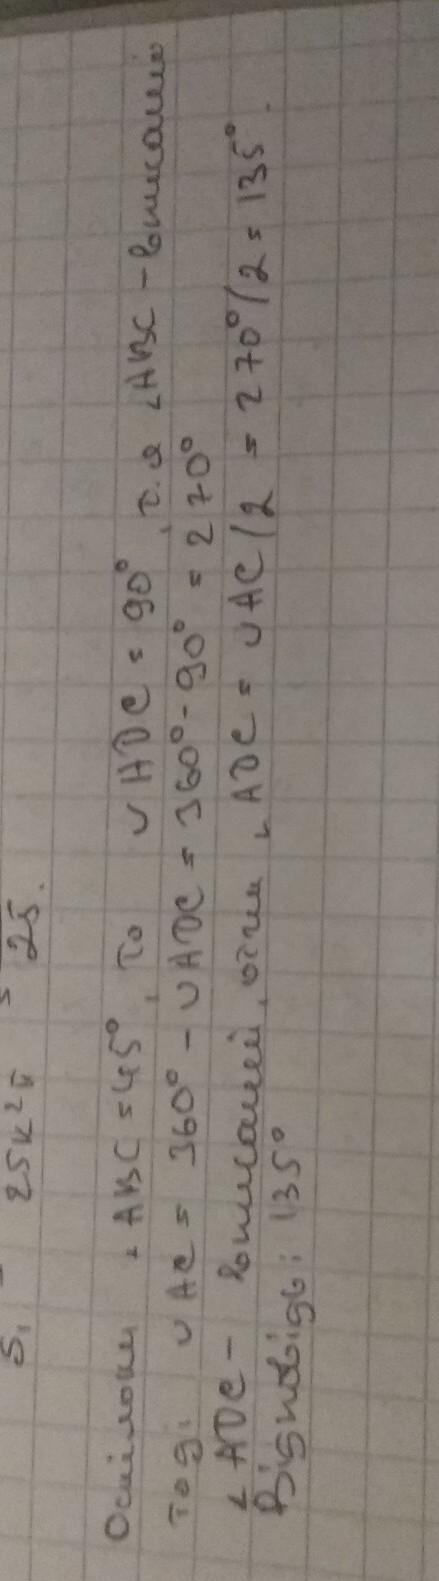 S₁ = 25k²π = 25.
Оскільки ∠ABC = 45°, то ∪ADC = 90°, т.я ∠ABC - вписаний
тоді ∪AC = 360° - ∪ADC = 360° - 90° = 270°
∠ADC - вписаний, отже ∠ADC = ∪AC/2 = 270°/2 = 135°.
Відповідь: 135°